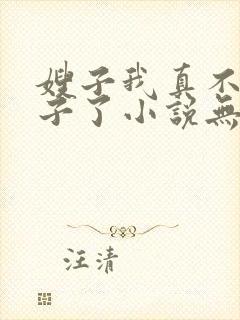 嫂子我真不
子了小説無
汪清